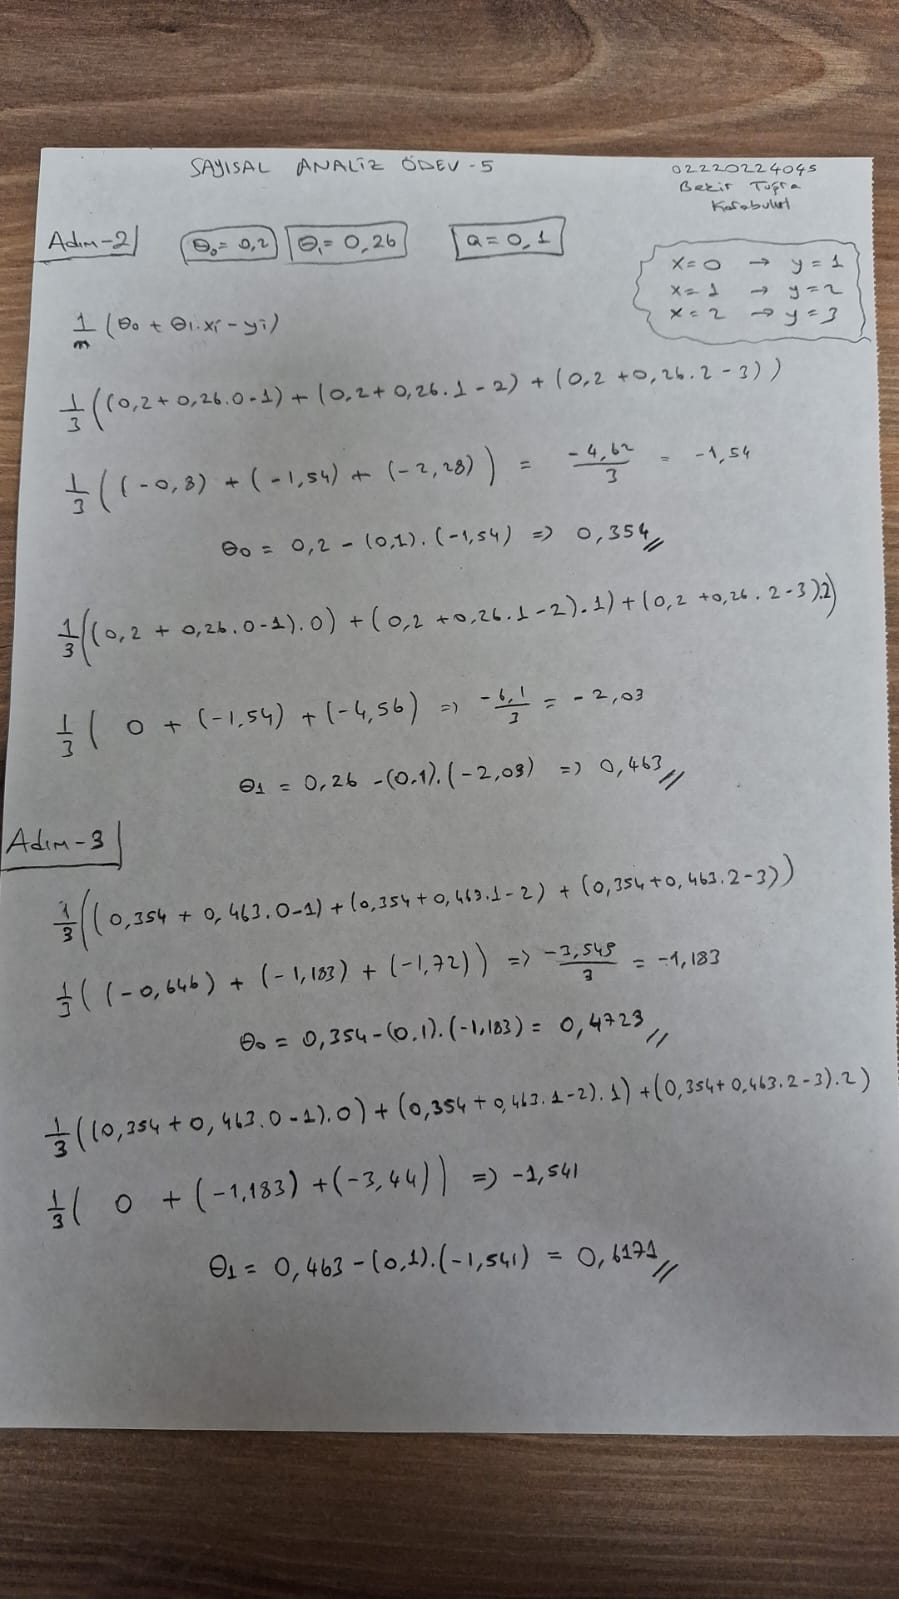 SAYISAL ANALİZ ÖDEV-5
02220224045
Bekir Tuğra
Karabulut
Adım-2
θ₀ = 0,2
θ₁ = 0,26
a = 0,1
x=0 → y=1
x=1 → y=2
x=2 → y=3
1/m (θ₀ + θ₁.xi - yi)
1/3 ((0,2 + 0,26.0-1) + (0,2 + 0,26.1-2) + (0,2 + 0,26.2-3))
1/3 ((-0,8) + (-1,54) + (-2,28)) = -4,62/3 = -1,54
θ₀ = 0,2 - (0,1).(-1,54) => 0,354//
1/3 ((0,2 + 0,26.0-1).0) + (0,2 + 0,26.1-2).1) + (0,2 + 0,26.2-3).2)
1/3 ( 0 + (-1,54) + (-4,56) => -6,1/3 = -2,03
θ₁ = 0,26 - (0,1).(-2,03) => 0,463//
Adım-3
1/3 ((0,354 + 0,463.0-1) + (0,354 + 0,463.1-2) + (0,354 + 0,463.2-3))
1/3 ((-0,646) + (-1,183) + (-1,72)) => -3,549/3 = -1,183
θ₀ = 0,354 - (0,1).(-1,183) = 0,4723//
1/3 ((0,354 + 0,463.0-1).0) + (0,354 + 0,463.1-2).1) + (0,354 + 0,463.2-3).2)
1/3 ( 0 + (-1,183) + (-3,44)) => -1,541
θ₁ = 0,463 - (0,1).(-1,541) = 0,6171//